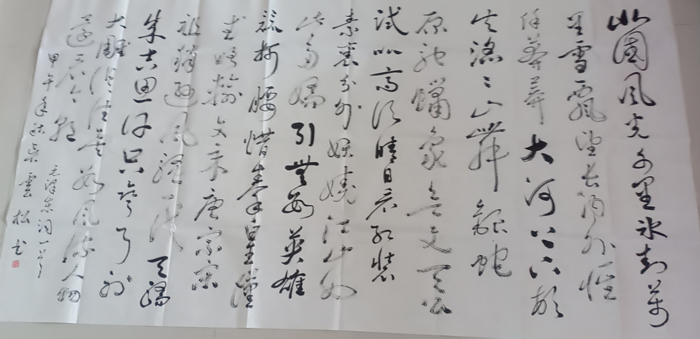 北國风光千里冰封萬
里雪飄望长城内外惟
余莽莽大河上下顿
失滔滔山舞銀蛇
原驰蠟象欲与天公
试比高须晴日看红装
素裹分外妖娆江山如
此多娇引無数英雄
竞折腰惜秦皇漢
武略输文采唐宗宋
祖稍逊风骚一代天骄
成吉思汗只识弯弓射
大雕俱往矣数风流人物
还看今朝
毛泽东词一首
甲午年秋 雲松书